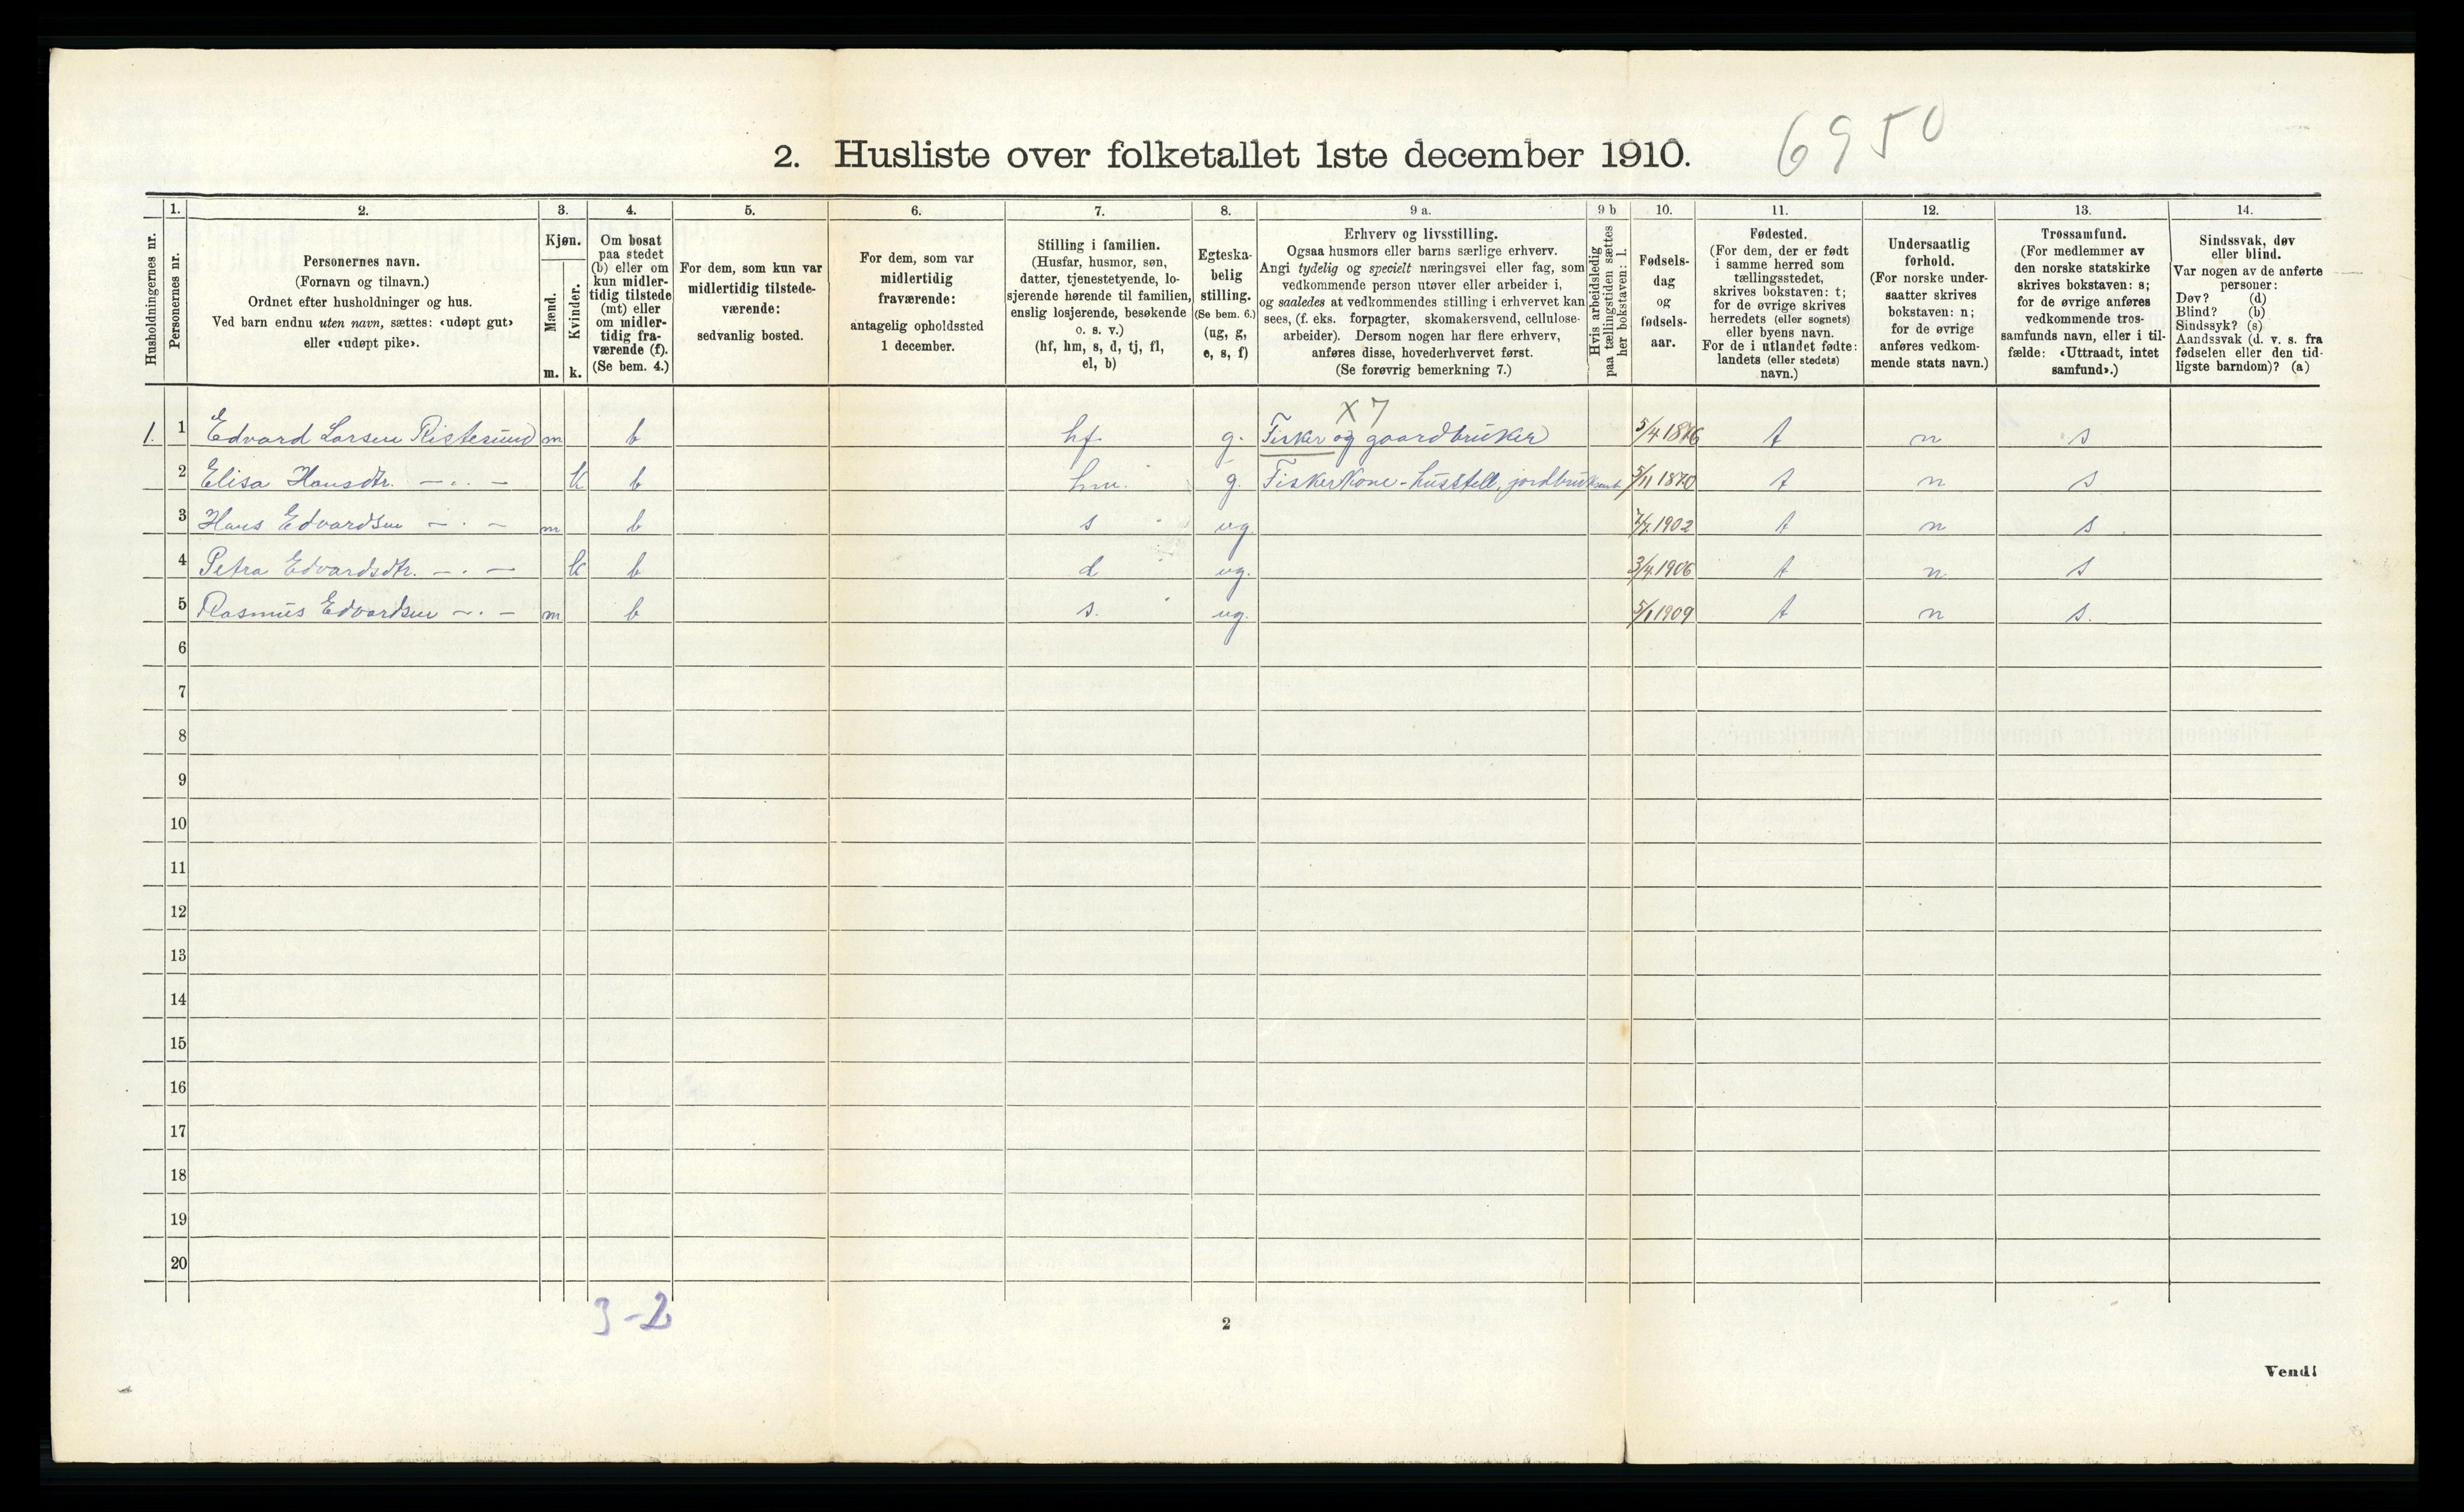 6950
2. Husliste over folketallet 1ste december 1910.
Husholdningernes nr.
1.
Personernes nr.
2.
Personernes navn.
(Fornavn og tilnavn.)
Ordnet efter husholdninger og hus.
Ved barn endnu uten navn, sættes: «udøpt gut»
eller «udøpt pike».
3.
Kjøn.
Mænd.
Kvinder.
m. k.
4.
Om bosat
paa stedet
(b) eller om
kun midler-
tidig tilstede
(mt) eller
om midler-
tidig fra-
værende (f).
(Se bem. 4.)
5.
For dem, som kun var
midlertidig tilstede-
værende:
sedvanlig bosted.
6.
For dem, som var
midlertidig
fraværende:
antagelig opholdssted
1 december.
7.
Stilling i familien.
(Husfar, husmor, søn,
datter, tjenestetyende, lo-
sjerende hørende til familien,
enslig losjerende, besøkende
o. s. v.)
(hf, hm, s, d, tj, fl,
el, b)
8.
Egteska-
belig
stilling.
(Se bem. 6.)
(ug, g,
e, s, f)
9 a.
Erhverv og livsstilling.
Ogsaa husmors eller barns særlige erhverv.
Angi tydelig og specielt næringsvei eller fag, som
vedkommende person utøver eller arbeider i,
og saaledes at vedkommendes stilling i erhvervet kan
sees, (f. eks. forpagter, skomakersvend, cellulose-
arbeider). Dersom nogen har flere erhverv,
anføres disse, hovederhvervet først.
(Se forøvrig bemerkning 7.)
9 b
Hvis arbeidsledig
paa tællingstiden sættes
her bokstaven: l.
10.
Fødsels-
dag
og
fødsels-
aar.
11.
Fødested.
(For dem, der er født
i samme herred som
tællingsstedet,
skrives bokstaven: t;
for de øvrige skrives
herredets (eller sognets)
eller byens navn.
For de i utlandet fødte:
landets (eller stedets)
navn.)
12.
Undersaatlig
forhold.
(For norske under-
saatter skrives
bokstaven: n;
for de øvrige
anføres vedkom-
mende stats navn.)
13.
Trossamfund.
(For medlemmer av
den norske statskirke
skrives bokstaven: s;
for de øvrige anføres
vedkommende tros-
samfunds navn, eller i til-
fælde: «Uttraadt, intet
samfund».)
14.
Sindssvak, døv
eller blind.
Var nogen av de anførte
personer:
Døv? (d)
Blind? (b)
Sindssyk? (s)
Aandssvak (d. v. s. fra
fødselen eller den tid-
ligste barndom)? (a)
X 7
1. 1 Edvard Larsen Ristesund m b hf. g. Fisker og gaardbruker 5/4 1876 t n s
2 Elisa Hansdtr. — „ — k b hm. g. Fiskerkone - husstell, jordbruk 5/11 1870 t n s
3 Hans Edvardsen — „ — m b s ug 1902 t n s
4 Petra Edvardsdtr. — „ — k b d ug. 3/4 1906 t n s
5 Rasmus Edvardsen — „ — m b s. ug. 5/1 1909 t n s.
6
7
8
9
10
11
12
13
14
15
16
17
18
19
20
3-2
2
Vend!